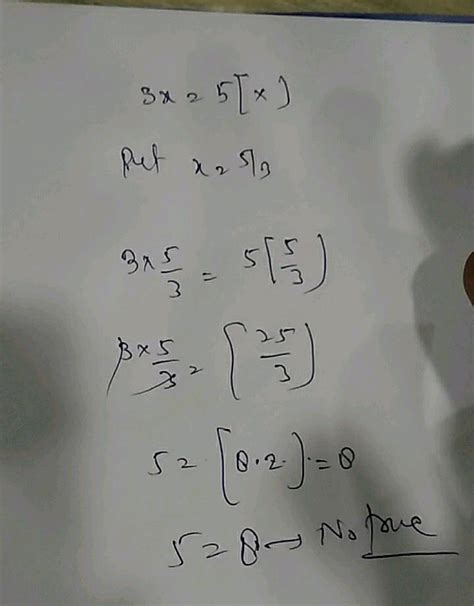 3x = 5[x]
Put x = 5/3
3 × 5/3 = 5[5/3]
3 × 5/3 = [25/3]
5 = [8.2] = 8
5 = 8 → No true